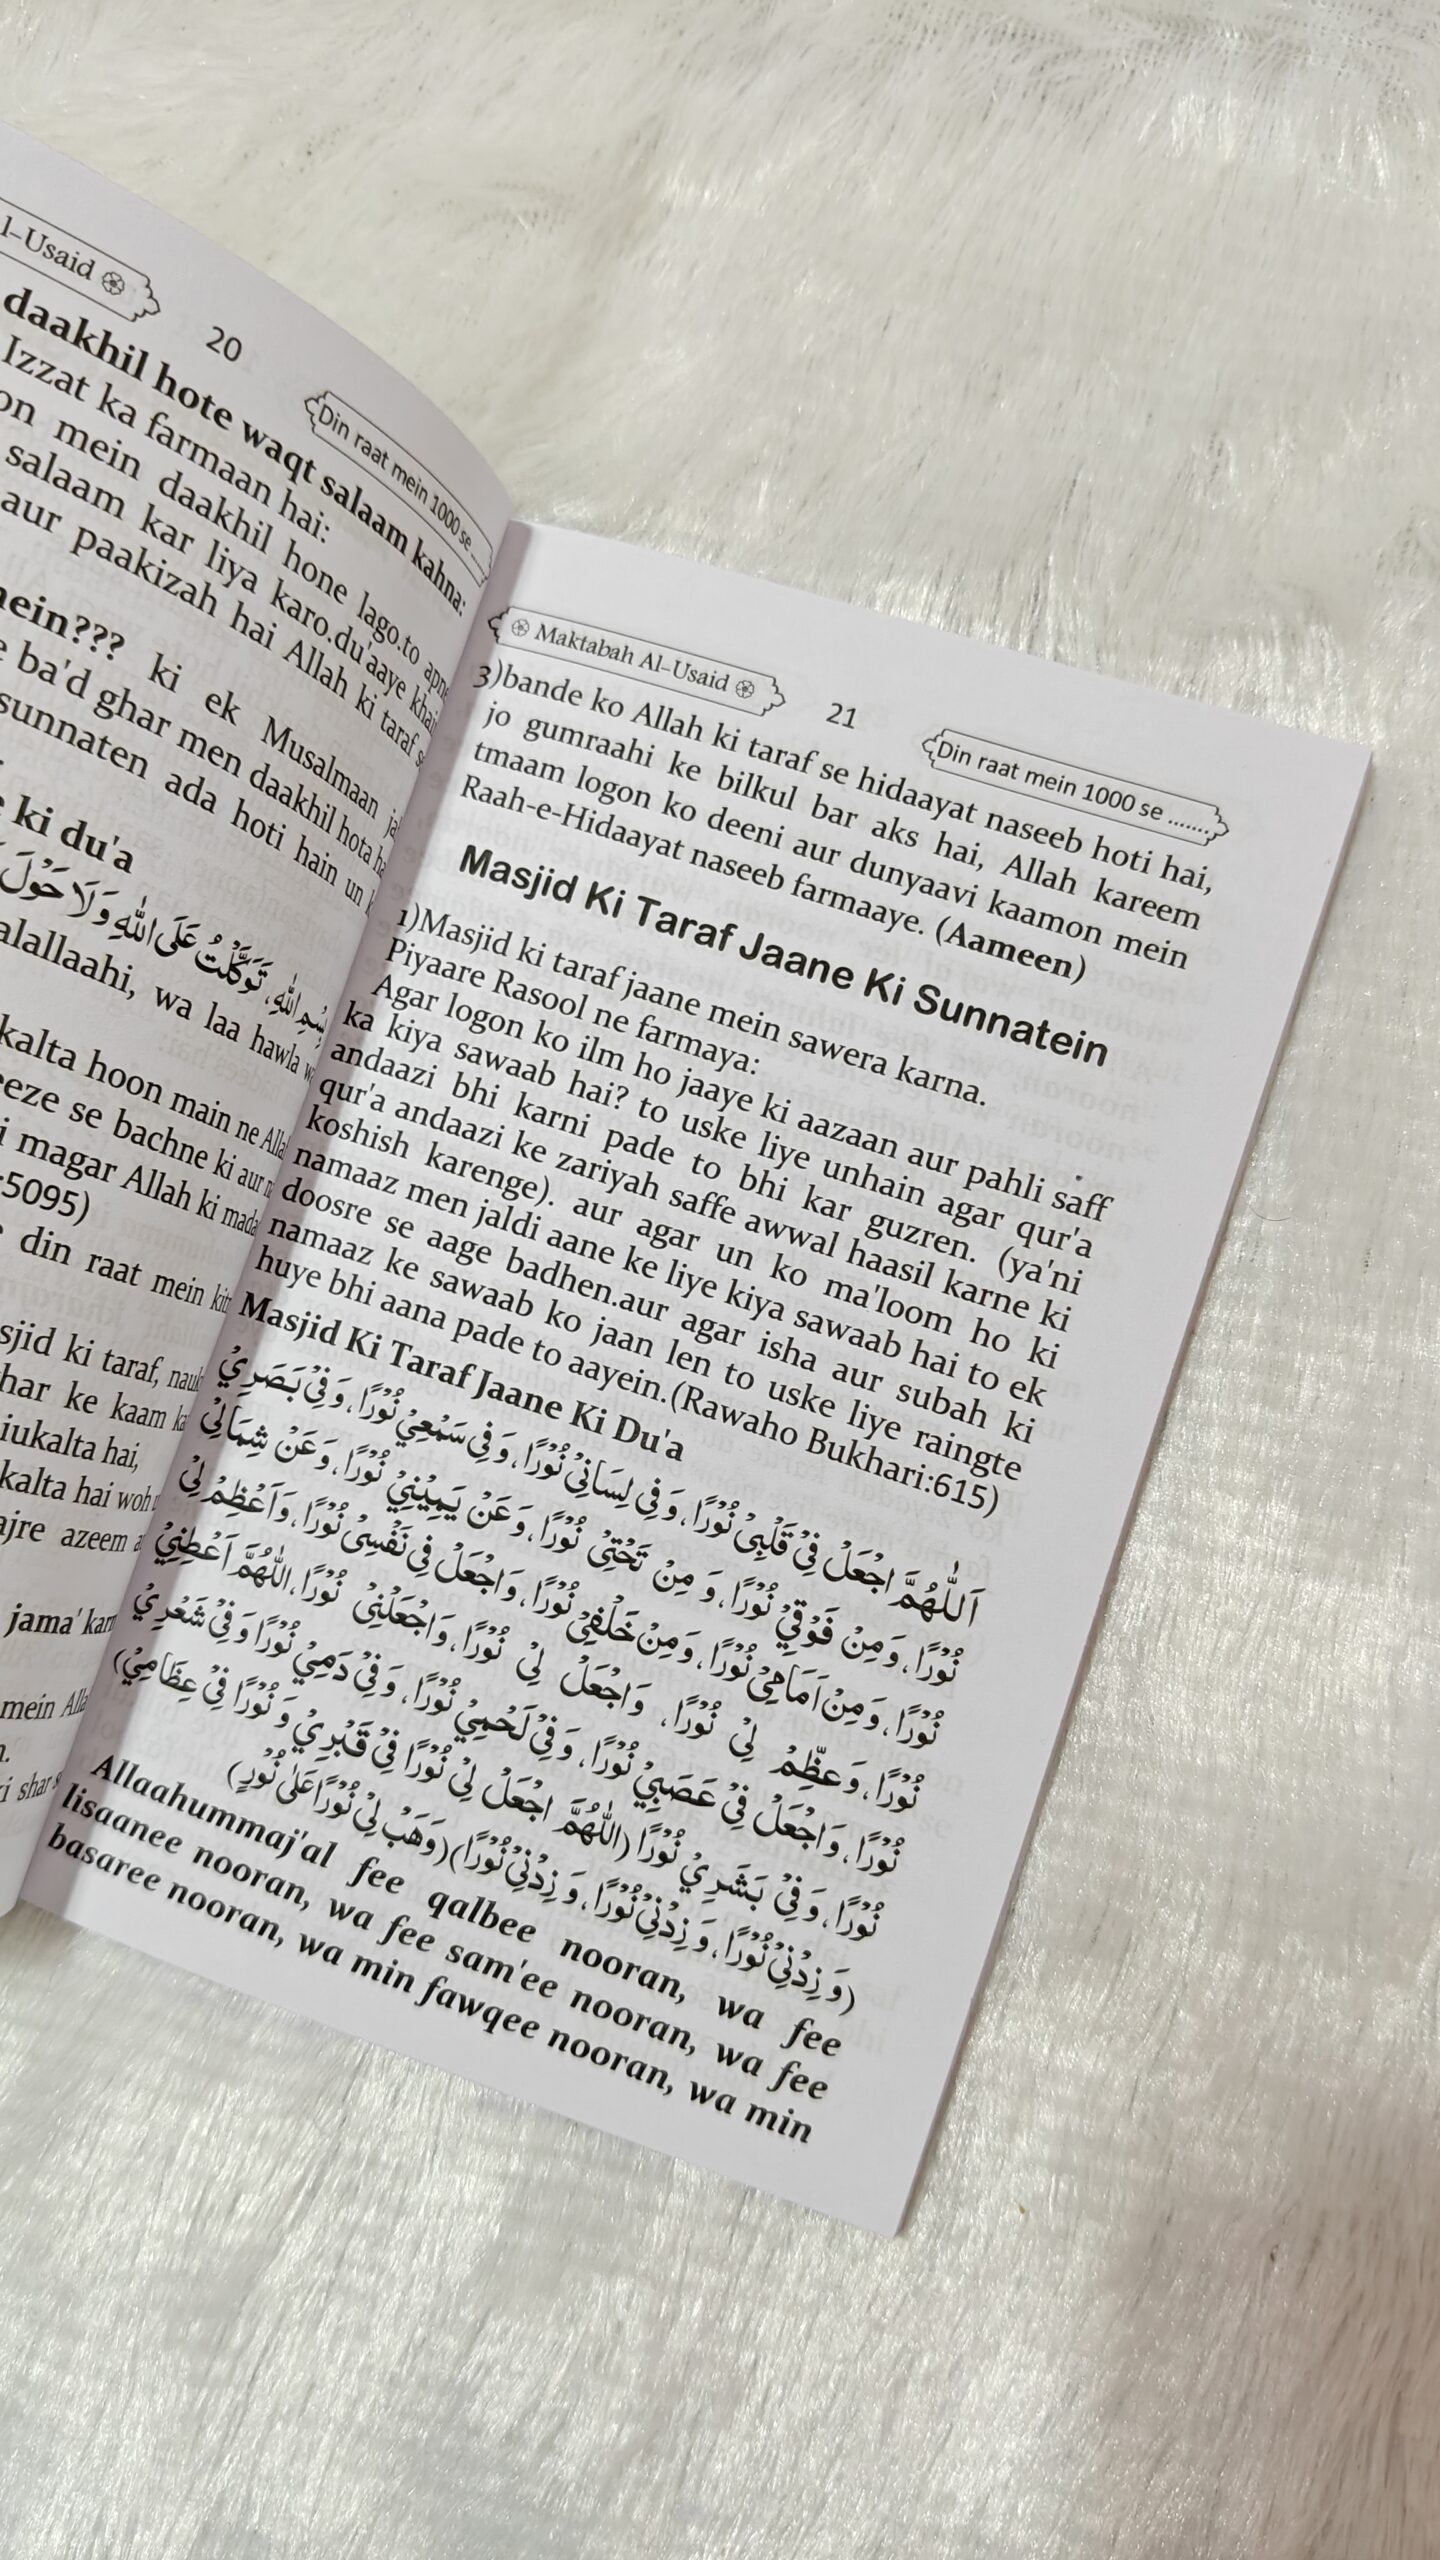 l-Usaid
20
Din raat mein 1000 se ......
daakhil hote waqt salaam kahna:
Izzat ka farmaan hai:
on mein daakhil hone lago.to apne
salaam kar liya karo.du'aaye khai
aur paakizah hai Allah ki taraf s
mein??? ki ek Musalmaan ja
e ba'd ghar men daakhil hota ha
sunnaten ada hoti hain un k
e ki du'a
بِسْمِ اللّٰهِ، تَوَكَّلْتُ عَلَى اللّٰهِ وَلَا حَوْلَ
alallaahi, wa laa hawla w
kalta hoon main ne Alla
eeze se bachne ki aur n
i magar Allah ki mada
:5095)
e din raat mein kit
sjid ki taraf, nauk
har ke kaam ka
iukalta hai,
kalta hai woh
ajre azeem a
jama' karn
mein Alla
n.
ri shar s
Maktabah Al-Usaid
21
Din raat mein 1000 se .......
3)bande ko Allah ki taraf se hidaayat naseeb hoti hai,
jo gumraahi ke bilkul bar aks hai, Allah kareem
tmaam logon ko deeni aur dunyaavi kaamon mein
Raah-e-Hidaayat naseeb farmaaye. (Aameen)
Masjid Ki Taraf Jaane Ki Sunnatein
1)Masjid ki taraf jaane mein sawera karna.
Piyaare Rasool ne farmaya:
Agar logon ko ilm ho jaaye ki aazaan aur pahli saff
ka kiya sawaab hai? to uske liye unhain agar qur'a
andaazi bhi karni pade to bhi kar guzren. (ya'ni
qur'a andaazi ke zariyah saffe awwal haasil karne ki
koshish karenge). aur agar un ko ma'loom ho ki
namaaz men jaldi aane ke liye kiya sawaab hai to ek
doosre se aage badhen.aur agar isha aur subah ki
namaaz ke sawaab ko jaan len to uske liye raingte
huye bhi aana pade to aayein.(Rawaho Bukhari:615)
Masjid Ki Taraf Jaane Ki Du'a
اَللّٰهُمَّ اجْعَلْ فِيْ قَلْبِيْ نُوْرًا، وَفِي لِسَانِيْ نُوْرًا، وَفِي سَمْعِيْ نُوْرًا، وَفِيْ بَصَرِيْ
نُوْرًا، وَمِنْ فَوْقِيْ نُوْرًا، وَ مِنْ تَحْتِيْ نُوْرًا، وَعَنْ يَمِيْنِيْ نُوْرًا، وَعَنْ شِمَالِيْ
نُوْرًا، وَمِنْ اَمَامِيْ نُوْرًا، وَمِنْ خَلْفِيْ نُوْرًا، وَاجْعَلْ فِي نَفْسِيْ نُوْرًا، وَاَعْظِمْ لِيْ
نُوْرًا، وَعَظِّمْ لِيْ نُوْرًا، وَاجْعَلْ لِيْ نُوْرًا، وَاجْعَلْنِيْ نُوْرًا، اَللّٰهُمَّ اَعْطِنِيْ
نُوْرًا، وَاجْعَلْ فِيْ عَصَبِيْ نُوْرًا، وَفِيْ لَحْمِيْ نُوْرًا، وَفِيْ دَمِيْ نُوْرًا وَفِيْ شَعْرِيْ
نُوْرًا، وَفِيْ بَشَرِيْ نُوْرًا (اَللّٰهُمَّ اجْعَلْ لِيْ نُوْرًا فِيْ قَبْرِيْ وَ نُوْرًا فِيْ عِظَامِيْ)
(وَ زِدْنِيْ نُوْرًا، وَ زِدْنِيْ نُوْرًا، وَ زِدْنِيْ نُوْرًا)(وَهَبْ لِيْ نُوْرًا عَلٰى نُوْرٍ)
Allaahummaj'al fee qalbee nooran, wa fee
lisaanee nooran, wa fee sam'ee nooran, wa fee
basaree nooran, wa min fawqee nooran, wa min